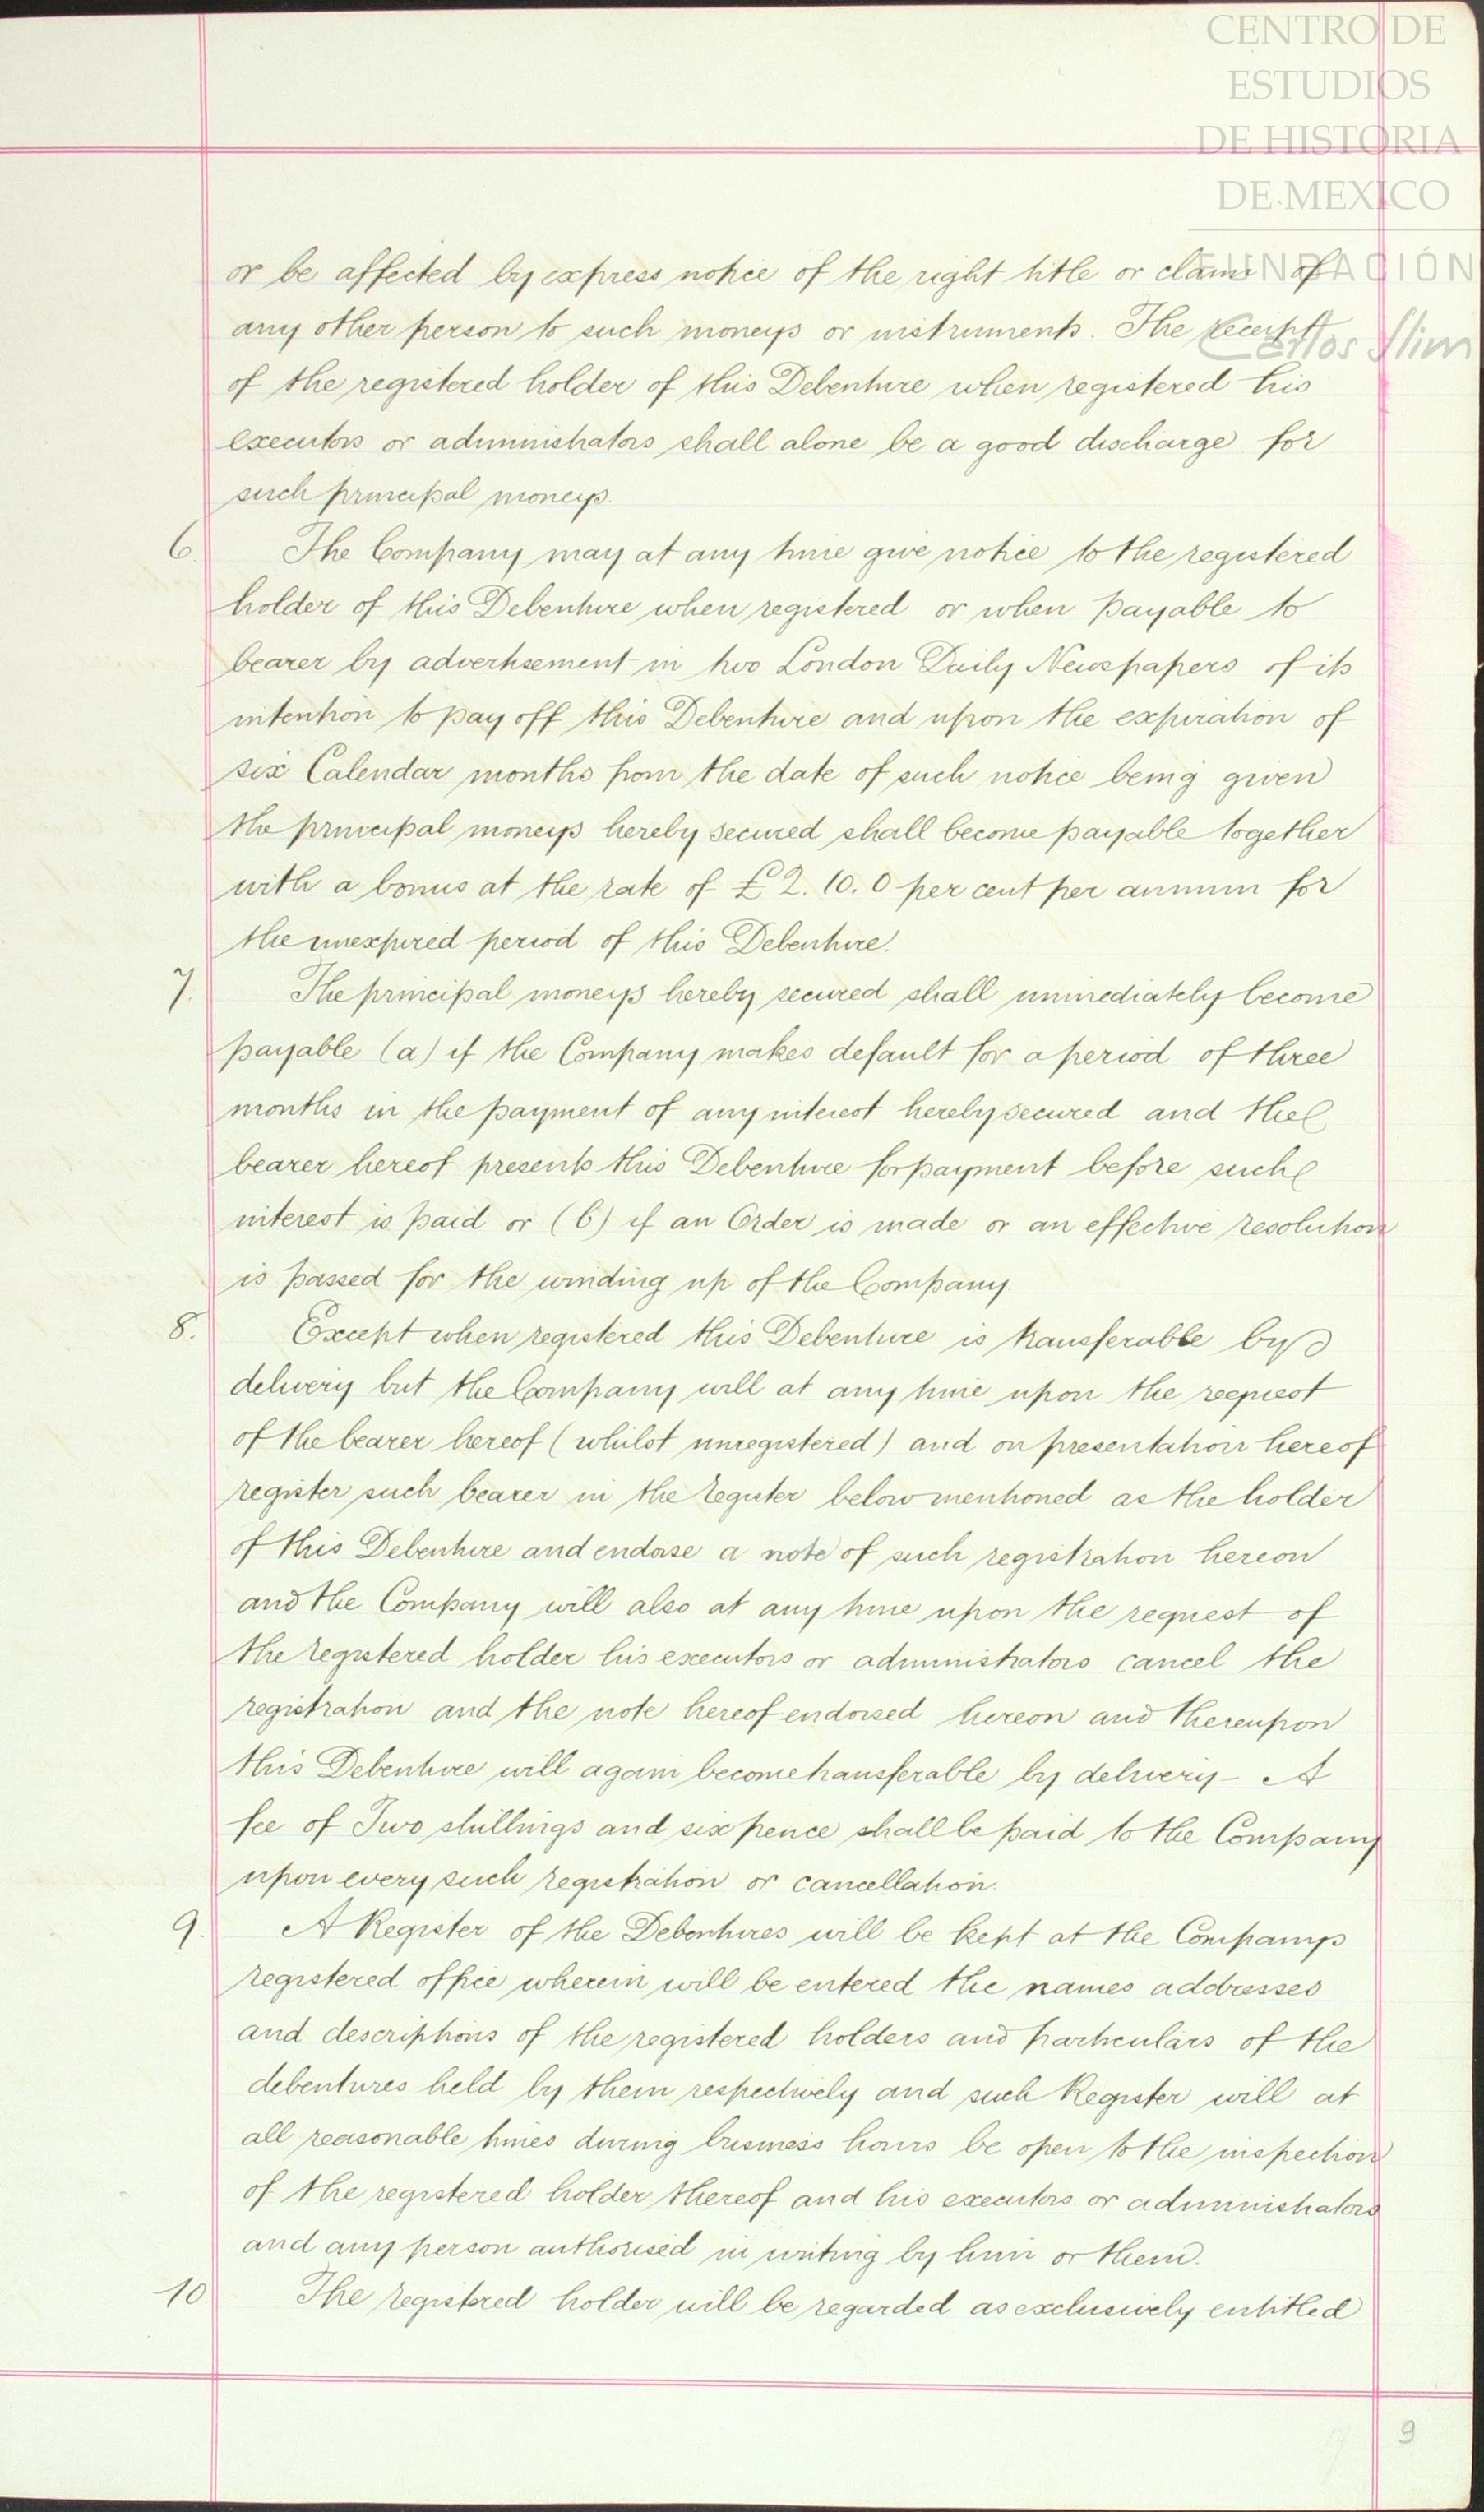 CENTRO DE
ESTUDIOS
DE HISTORIA
DE MEXICO
FUNDACIÓN
Carlos Slim
or be affected by express notice of the right title or claim of
any other person to such moneys or instruments. The receipt
of the registered holder of this Debenture when registered his
executors or administrators shall alone be a good discharge for
such principal moneys.
6. The Company may at any time give notice to the registered
holder of this Debenture when registered or when payable to
bearer by advertisement in two London Daily Newspapers of its
intention to pay off this Debenture and upon the expiration of
six Calendar months from the date of such notice being given
the principal moneys hereby secured shall become payable together
with a bonus at the rate of £2. 10. 0 per cent per annum for
the unexpired period of this Debenture.
7. The principal moneys hereby secured shall immediately become
payable (a) if the Company makes default for a period of three
months in the payment of any interest hereby secured and the
bearer hereof presents this Debenture for payment before such
interest is paid or (b) if an Order is made or an effective resolution
is passed for the winding up of the Company.
8. Except when registered this Debenture is transferable by
delivery but the Company will at any time upon the request
of the bearer hereof (whilst unregistered) and on presentation hereof
register such bearer in the register below mentioned as the holder
of this Debenture and endorse a note of such registration hereon
and the Company will also at any time upon the request of
the registered holder his executors or administrators cancel the
registration and the note hereof endorsed hereon and thereupon
this Debenture will again become transferable by delivery - A
fee of Two shillings and six pence shall be paid to the Company
upon every such registration or cancellation.
9. A Register of the Debentures will be kept at the Companys
registered office wherein will be entered the names addresses
and descriptions of the registered holders and particulars of the
debentures held by them respectively and such Register will at
all reasonable times during business hours be open to the inspection
of the registered holder thereof and his executors or administrators
and any person authorised in writing by him or them.
10. The registered holder will be regarded as exclusively entitled
9